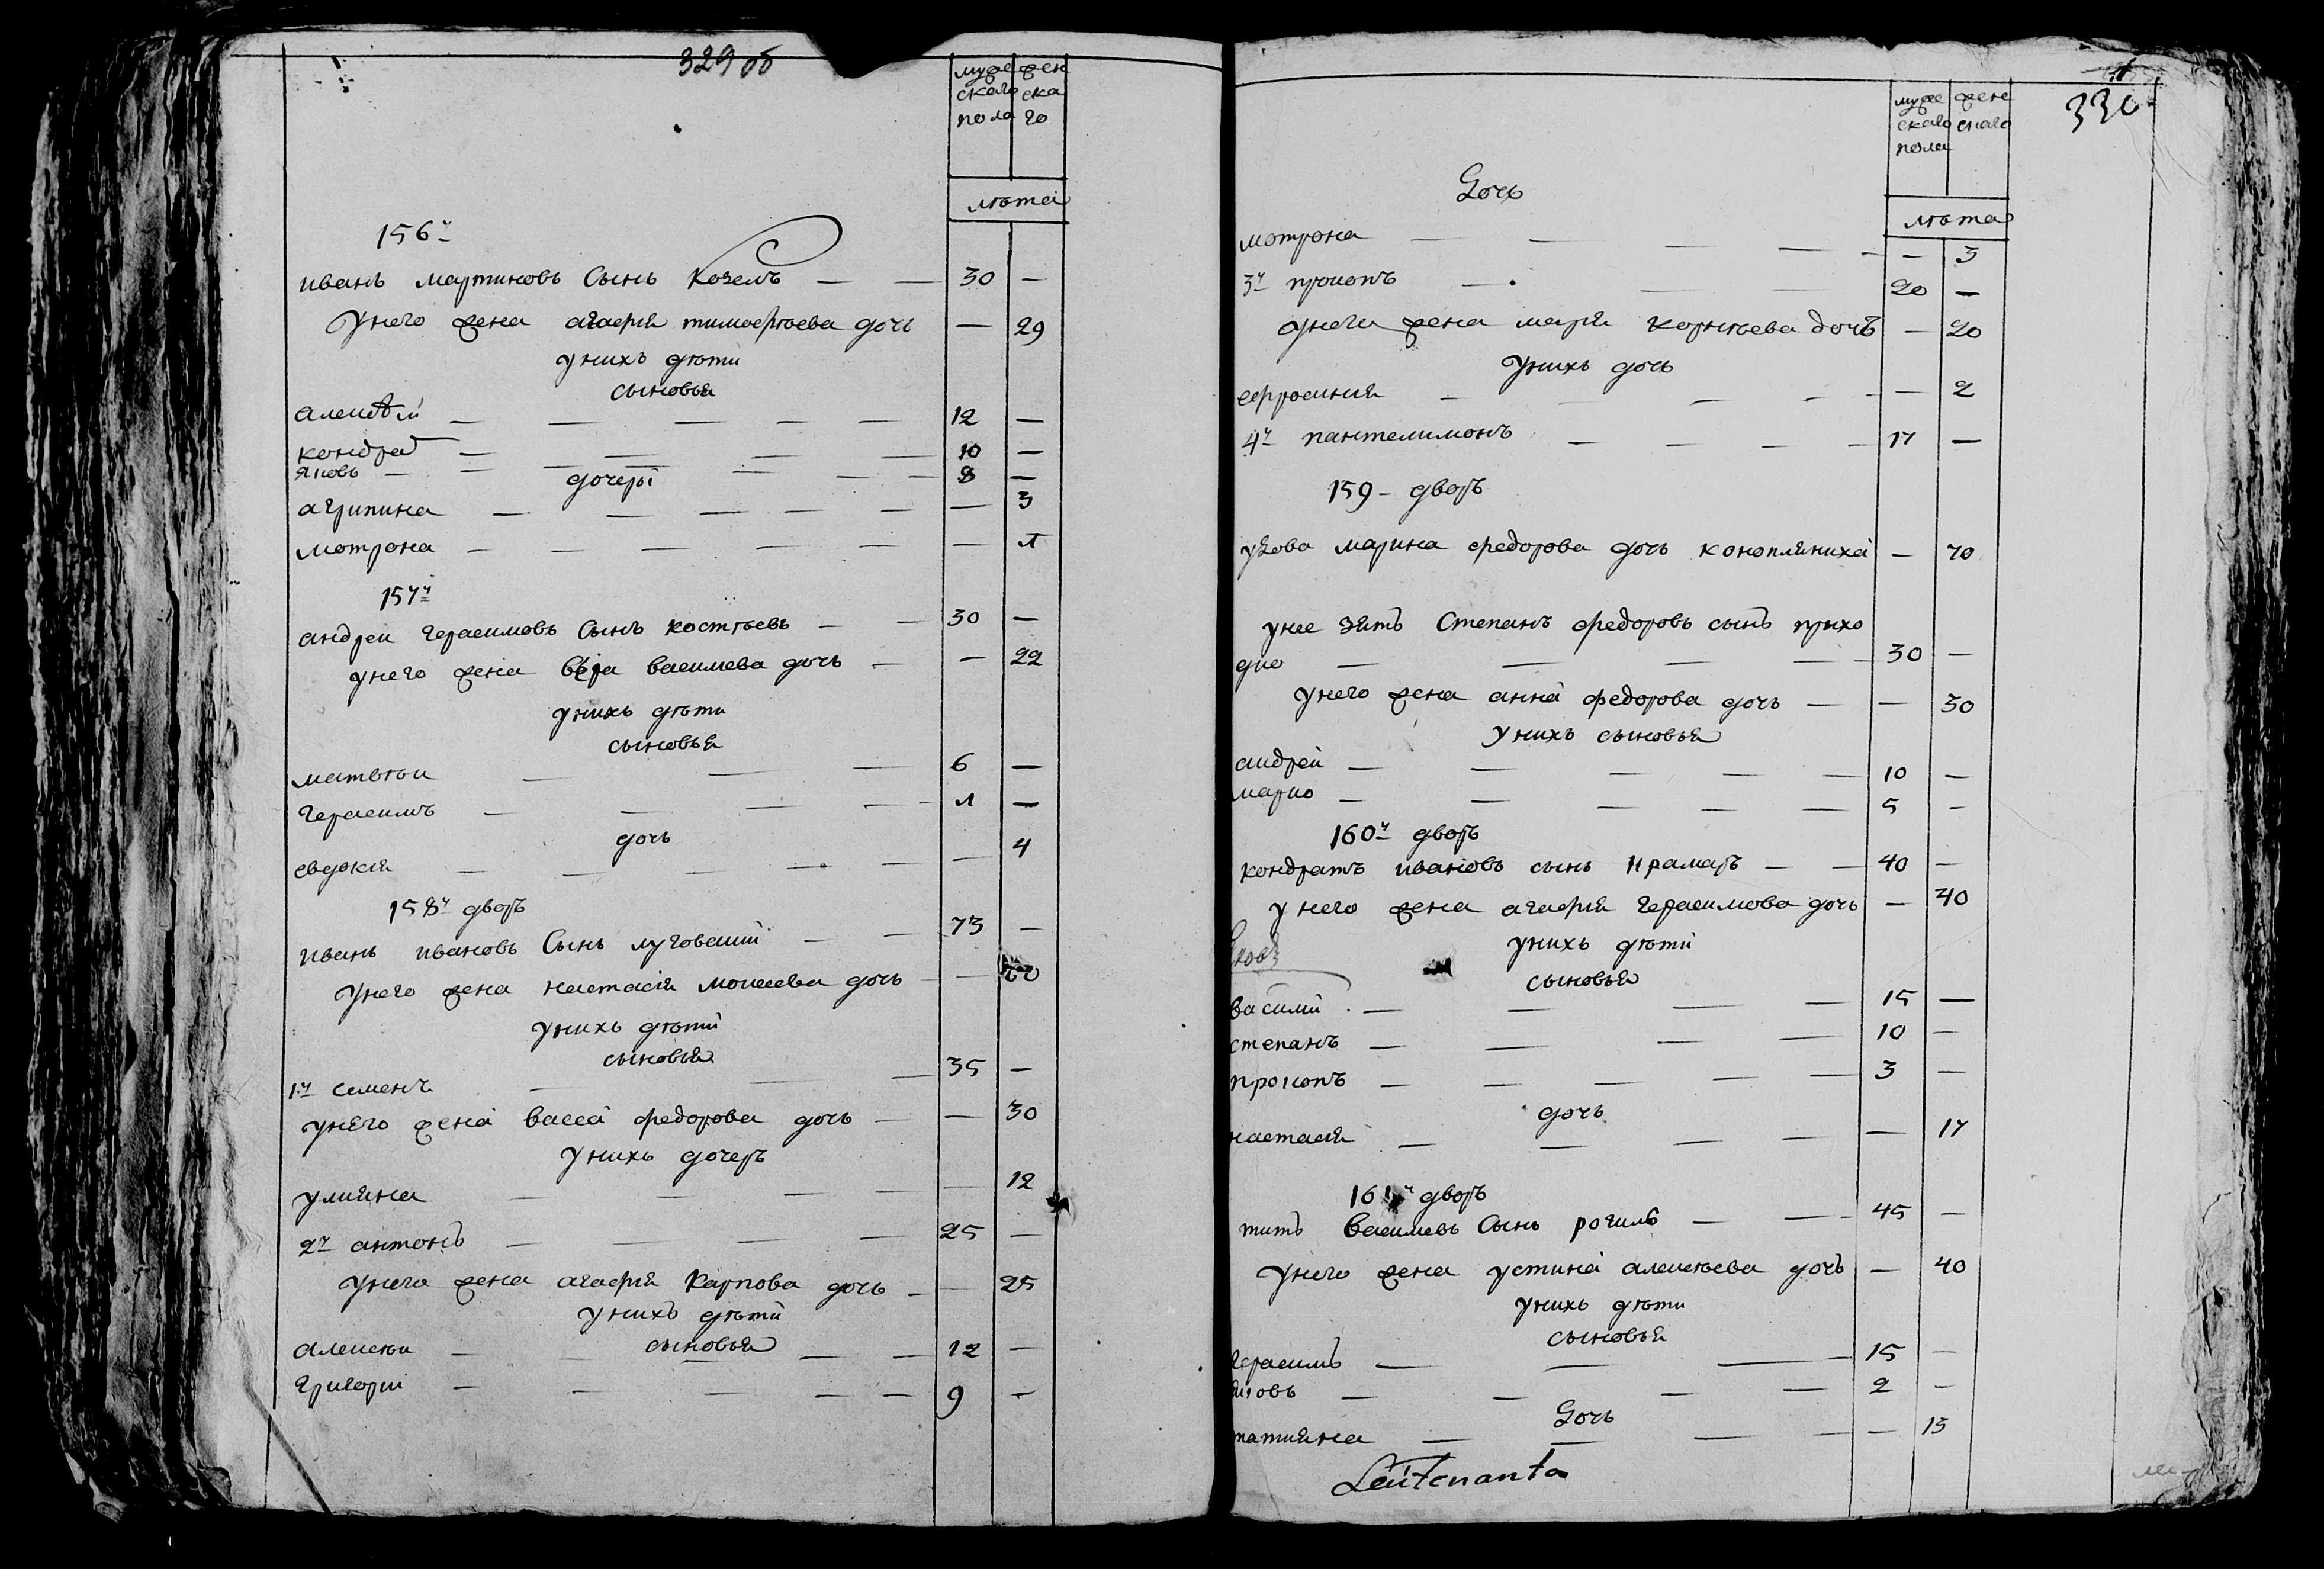 329 об
муже ского пола жен ска го
люта
156й
иванъ мартиновъ Сынъ Козелъ — — 30 —
Унего жена агафия тимофеева дочь — 29
унихъ дѣти
сыновья
алексѣй — 12 —
кондрат — 10 —
яковъ — 8 —
дочеры
агрипина — 3
мотрона — 1
157й
андреи герасимовъ Сынъ костѣевъ — 30 —
унего жена вера василева дочь — — 22
унихъ дѣти
сыновья
матвѣи — 6 —
герасимъ — 1 —
дочь
евдокия — — 4
158й дворъ
иванъ ивановъ Сынъ луговший — 73 —
Унего жена настасия моисеева дочь —
унихъ дѣти
сыновья
1й семенъ — 35 —
унего жена васса федорова дочь — — 30
Унихъ дочеръ
улияна — — 12
2й антонъ — 25 —
Унего жена агафия Карпова дочь — — 25
унихъ дѣти
сыновья
алексеи — 12 —
григории — 9 —
330
муже ского пола жен скаго
люта
Дочь
мотрона — — 3
3й прокопъ — 20 —
унего жена мария корнѣева дочъ — 20
Унихъ дочь
ефросиния — — 2
4й пантелимонъ — 17 —
159 – дворъ
удова марина федорова дочь коноплянихă — 70
унее зять Степанъ федоровъ сынъ прихо
дко — 30 —
Унего жена анна федорова дочь — — 30
Унихъ сыновья
андрей — 10 —
марко — 5 —
160й дворъ
кондратъ ивановъ сынъ Крамаръ — 40 —
у него жена агафия герасимова дочь — 40
унихъ дѣти
сыновья
василий — 15 —
степанъ — 10 —
прокопъ — 3 —
дочь
настасия — — 17
161й дворъ
титъ василевъ Сынъ рогиль — 45 —
Унего жена устина алексѣева дочъ — 40
унихъ дѣти
сыновья
герасимъ — 15 —
яковъ — 2 —
Дочь
татияна — — 13
Leütenanta